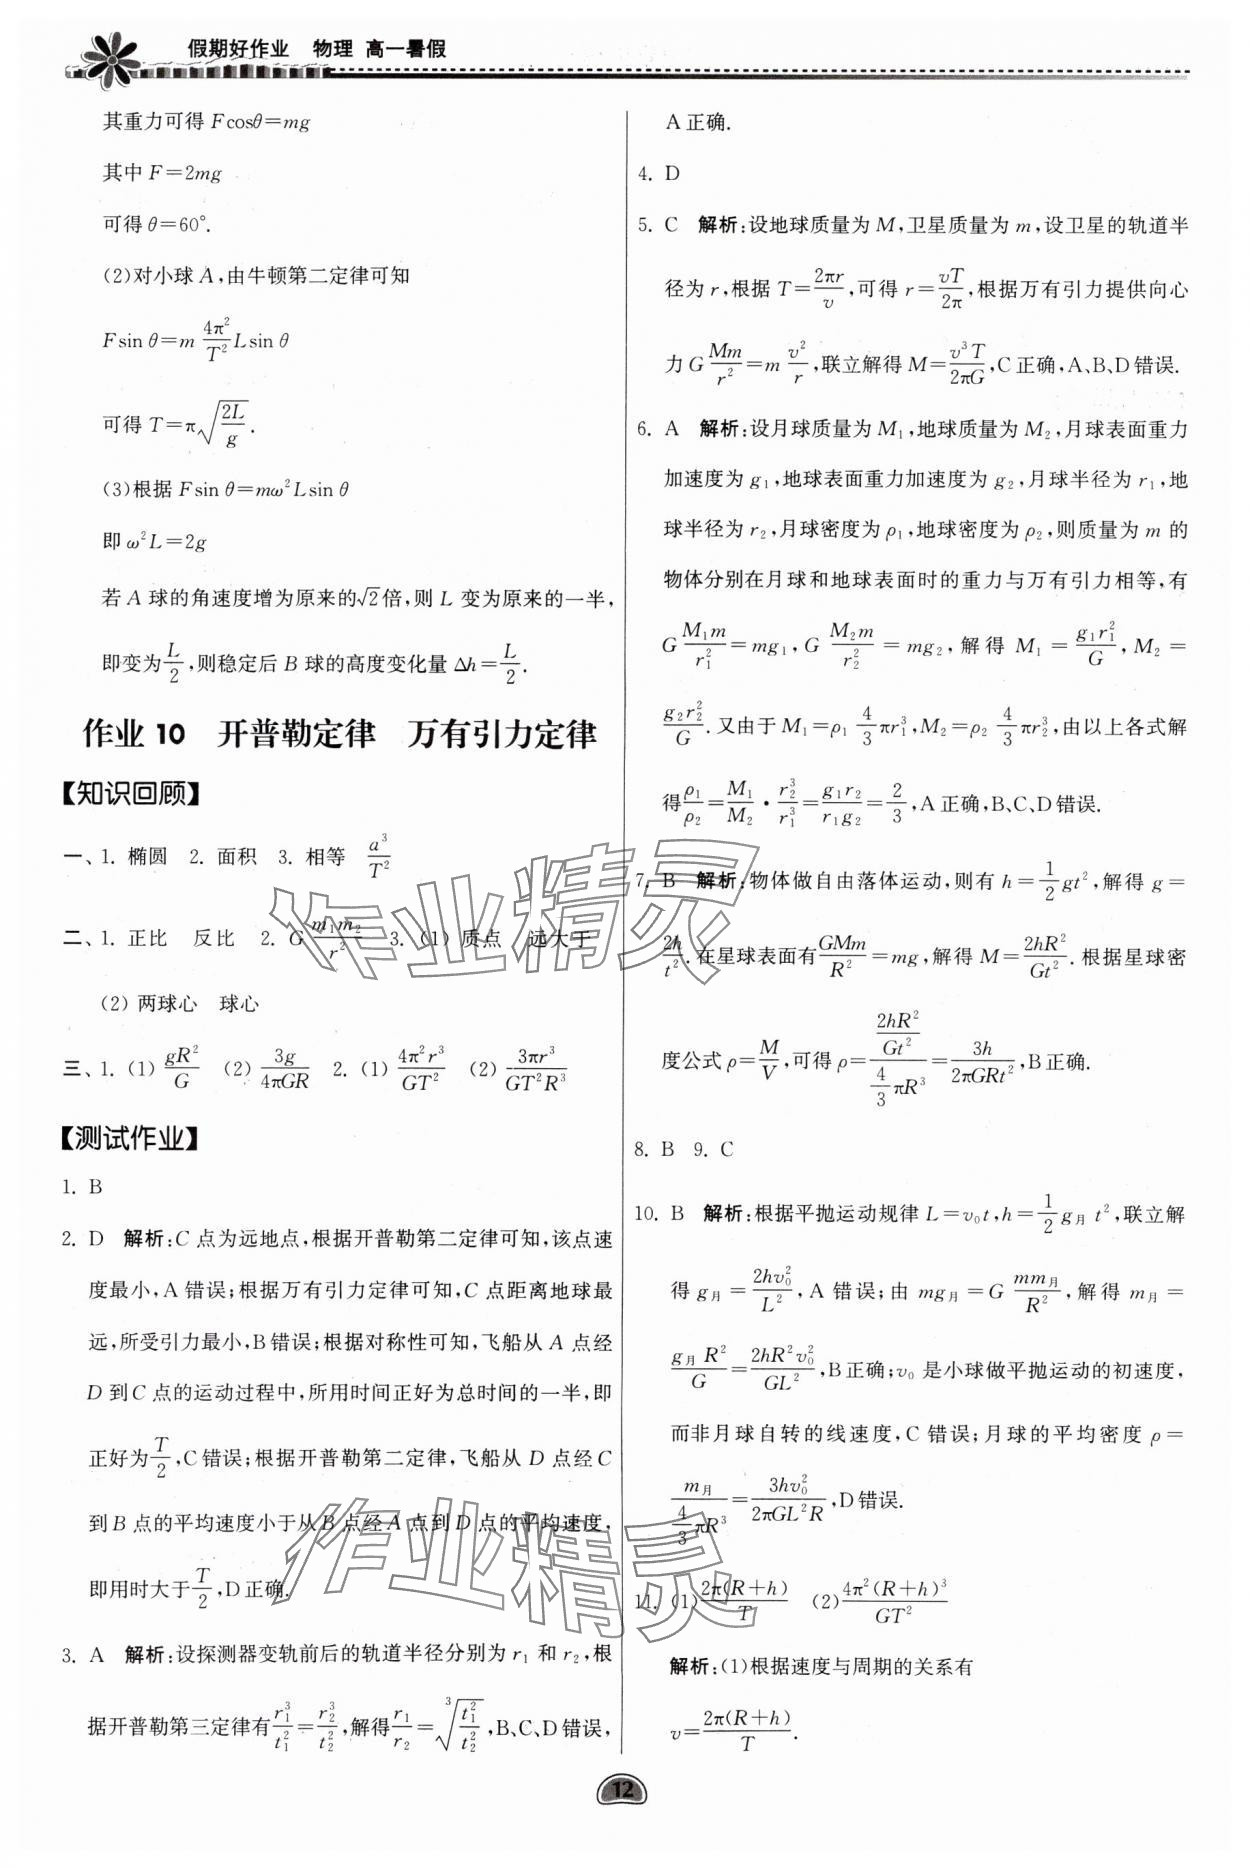 假期好作业 物理 高一暑假
其重力可得 Fcosθ=mg
其中 F=2mg
可得 θ=60°.
(2)对小球 A,由牛顿第二定律可知
Fsin θ=m 4π²/T² Lsin θ
可得 T=π√(2L/g).
(3)根据 Fsin θ=mω²Lsin θ
即 ω²L=2g
若 A 球的角速度增为原来的√2倍,则 L 变为原来的一半,
即变为 L/2,则稳定后 B 球的高度变化量 Δh=L/2.
作业 10 开普勒定律 万有引力定律
【知识回顾】
一、1. 椭圆 2. 面积 3. 相等 a³/T²
二、1. 正比 反比 2. G m₁m₂/r² 3. (1) 质点 远大于
(2) 两球心 球心
三、1. (1) gR²/G (2) 3g/4πGR 2. (1) 4π²r³/GT² (2) 3πr³/GT²R³
【测试作业】
1. B
2. D 解析:C 点为远地点,根据开普勒第二定律可知,该点速
度最小,A 错误;根据万有引力定律可知,C 点距离地球最
远,所受引力最小,B 错误;根据对称性可知,飞船从 A 点经
D 到 C 点的运动过程中,所用时间正好为总时间的一半,即
正好为 T/2,C 错误;根据开普勒第二定律,飞船从 D 点经 C
到 B 点的平均速度小于从 B 点经 A 点到 D 点的平均速度,
即用时大于 T/2,D 正确.
3. A 解析:设探测器变轨前后的轨道半径分别为 r₁ 和 r₂,根
据开普勒第三定律有 r₁³/t₁²=r₂³/t₂²,解得 r₁/r₂=∛(t₁²/t₂²),B、C、D 错误,
A 正确.
4. D
5. C 解析:设地球质量为 M,卫星质量为 m,设卫星的轨道半
径为 r,根据 T=2πr/v,可得 r=vT/2π,根据万有引力提供向心
力 G Mm/r²=m v²/r,联立解得 M=v³T/2πG,C 正确,A、B、D 错误.
6. A 解析:设月球质量为 M₁,地球质量为 M₂,月球表面重力
加速度为 g₁,地球表面重力加速度为 g₂,月球半径为 r₁,地
球半径为 r₂,月球密度为 ρ₁,地球密度为 ρ₂,则质量为 m 的
物体分别在月球和地球表面时的重力与万有引力相等,有
G M₁m/r₁²=mg₁,G M₂m/r₂²=mg₂,解得 M₁=g₁r₁²/G,M₂=
g₂r₂²/G.又由于 M₁=ρ₁ 4/3 πr₁³,M₂=ρ₂ 4/3 πr₂³,由以上各式解
得 ρ₁/ρ₂=M₁/M₂·r₂³/r₁³=g₁r₂/r₁g₂=2/3,A 正确,B、C、D 错误.
7. B 解析:物体做自由落体运动,则有 h=1/2 gt²,解得 g=
2h/t².在星球表面有 GMm/R²=mg,解得 M=2hR²/Gt².根据星球密
度公式 ρ=M/V,可得 ρ=(2hR²/Gt²)/(4/3 πR³)=3h/2πGRt²,B 正确.
8. B 9. C
10. B 解析:根据平抛运动规律 L=v₀t,h=1/2 g月 t²,联立解
得 g月=2hv₀²/L²,A 错误;由 mg月=G mm月/R²,解得 m月=
g月R²/G=2hR²v₀²/GL²,B 正确;v₀ 是小球做平抛运动的初速度,
而非月球自转的线速度,C 错误;月球的平均密度 ρ=
m月/(4/3 πR³)=3hv₀²/2πGL²R,D 错误.
11. (1) 2π(R+h)/T (2) 4π²(R+h)³/GT²
解析:(1)根据速度与周期的关系有
v=2π(R+h)/T.
12
作业精灵
作业精灵